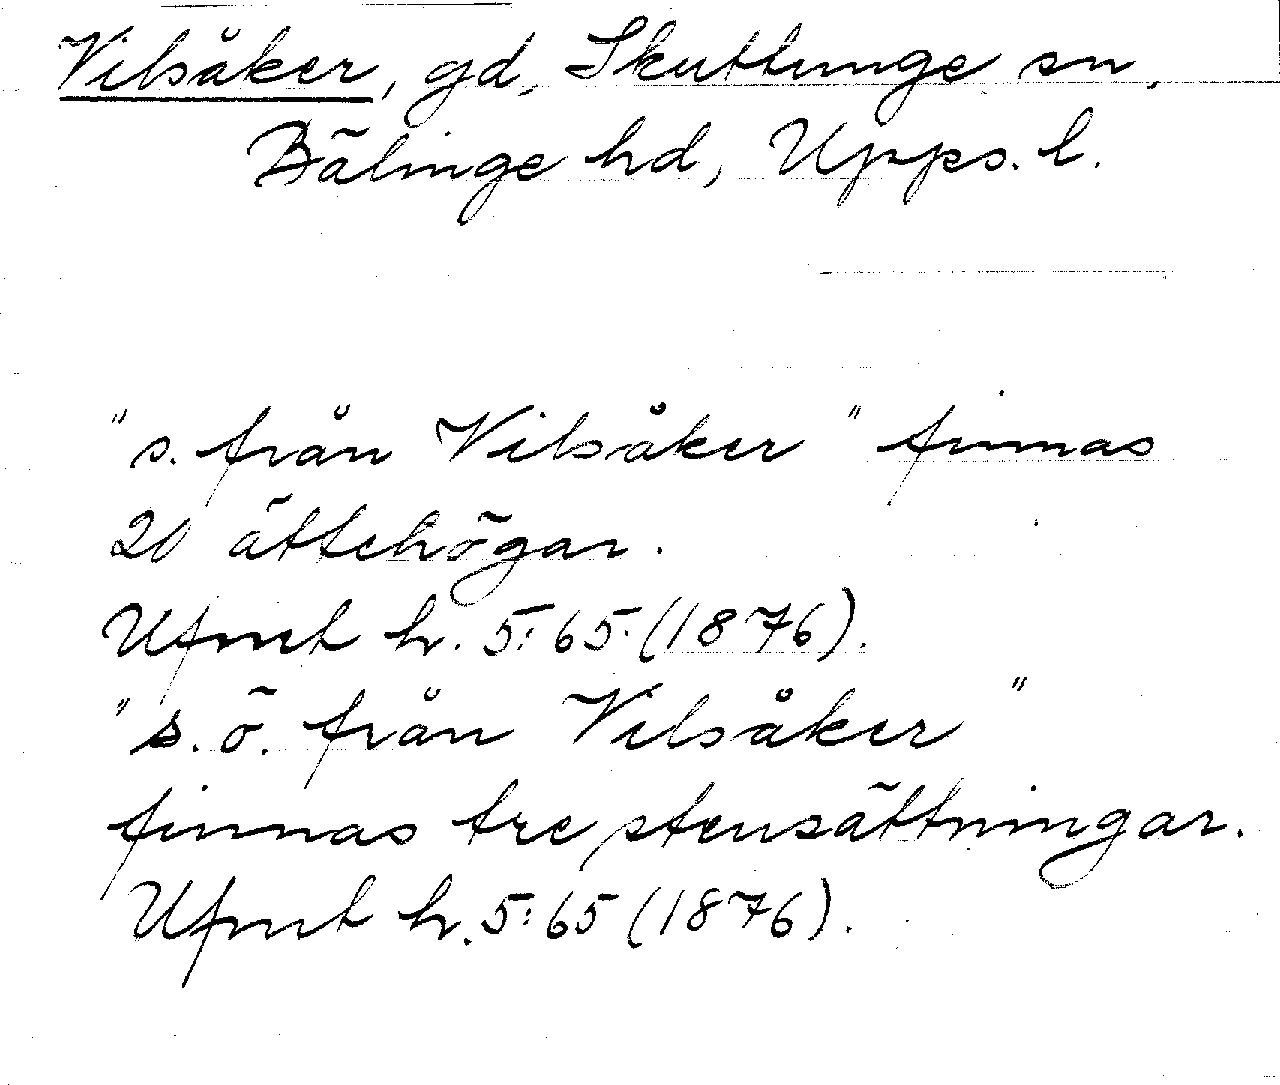 Vilsåker, gd, Skuttunge sn,
Bälinge hd, Upps. l.
"s. från Vilsåker" finnas
20 ättehögar.
Ufmt h. 5:65 (1876).
"s.ö. från Vilsåker"
finnas tre stensättningar.
Ufmt h. 5:65 (1876).